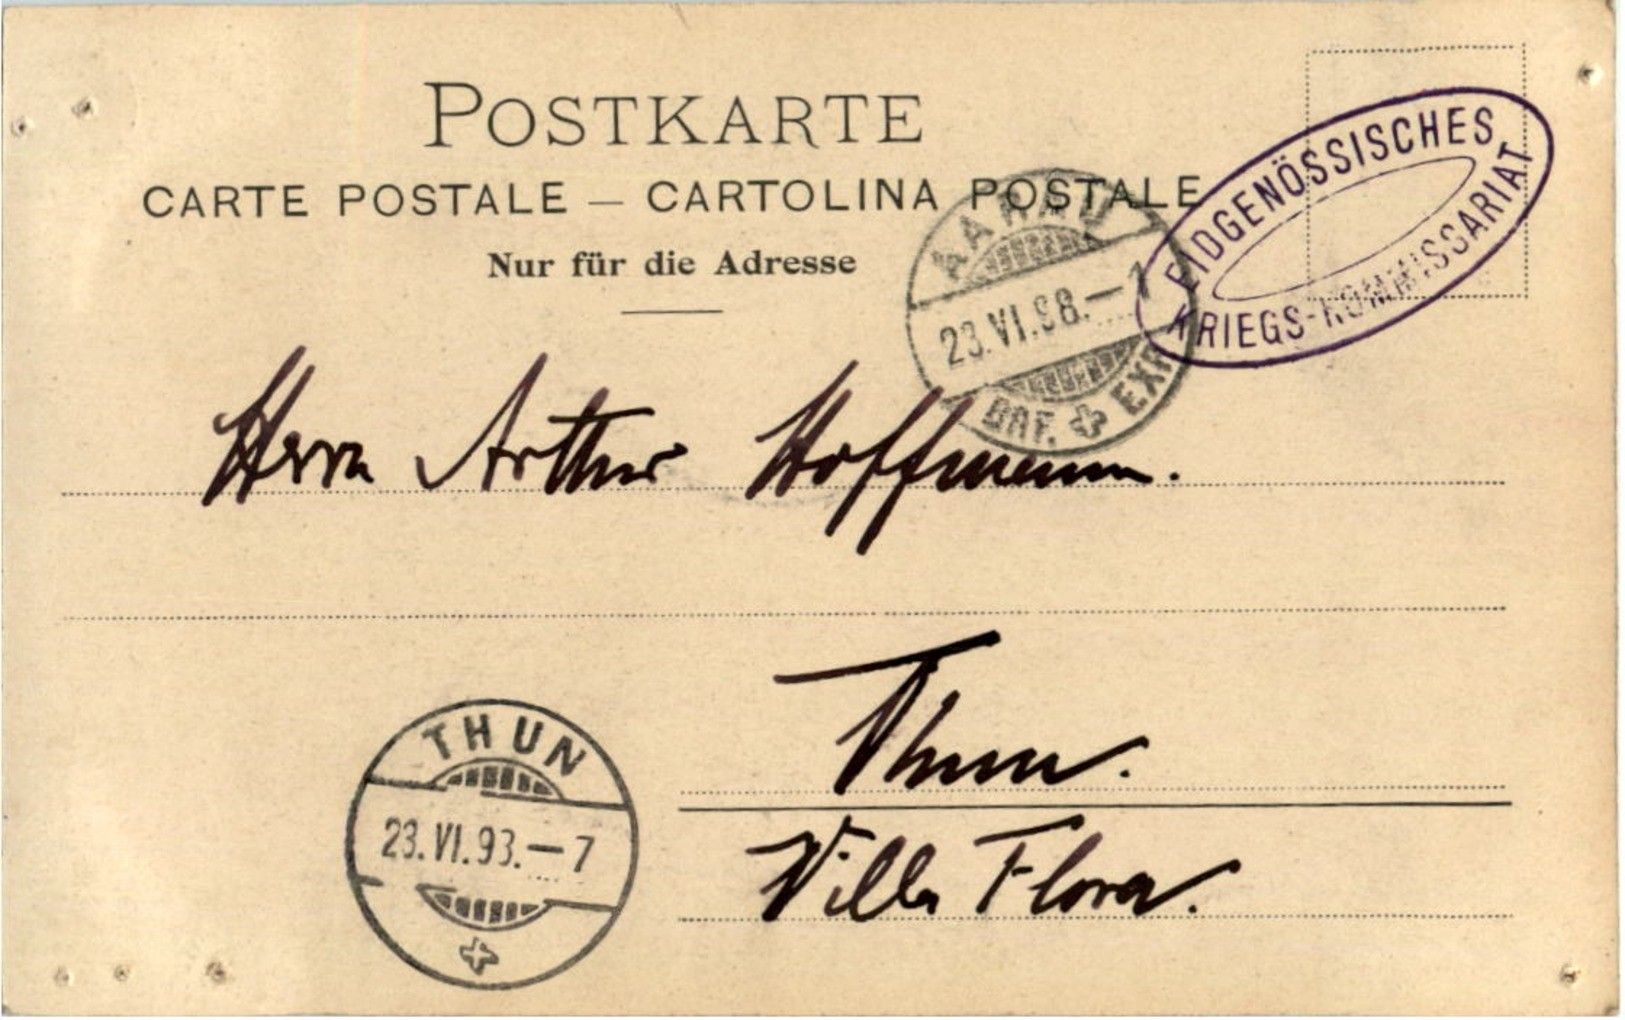 POSTKARTE
CARTE POSTALE — CARTOLINA POSTALE
Nur für die Adresse
EIDGENÖSSISCHES
KRIEGS-KOMMISSARIAT
AARAU
23.VI.98.—7
BRF. EXP.
Herrn Arthur Hoffmann.
Thun.
Villa Flora.
THUN
23.VI.93.—7